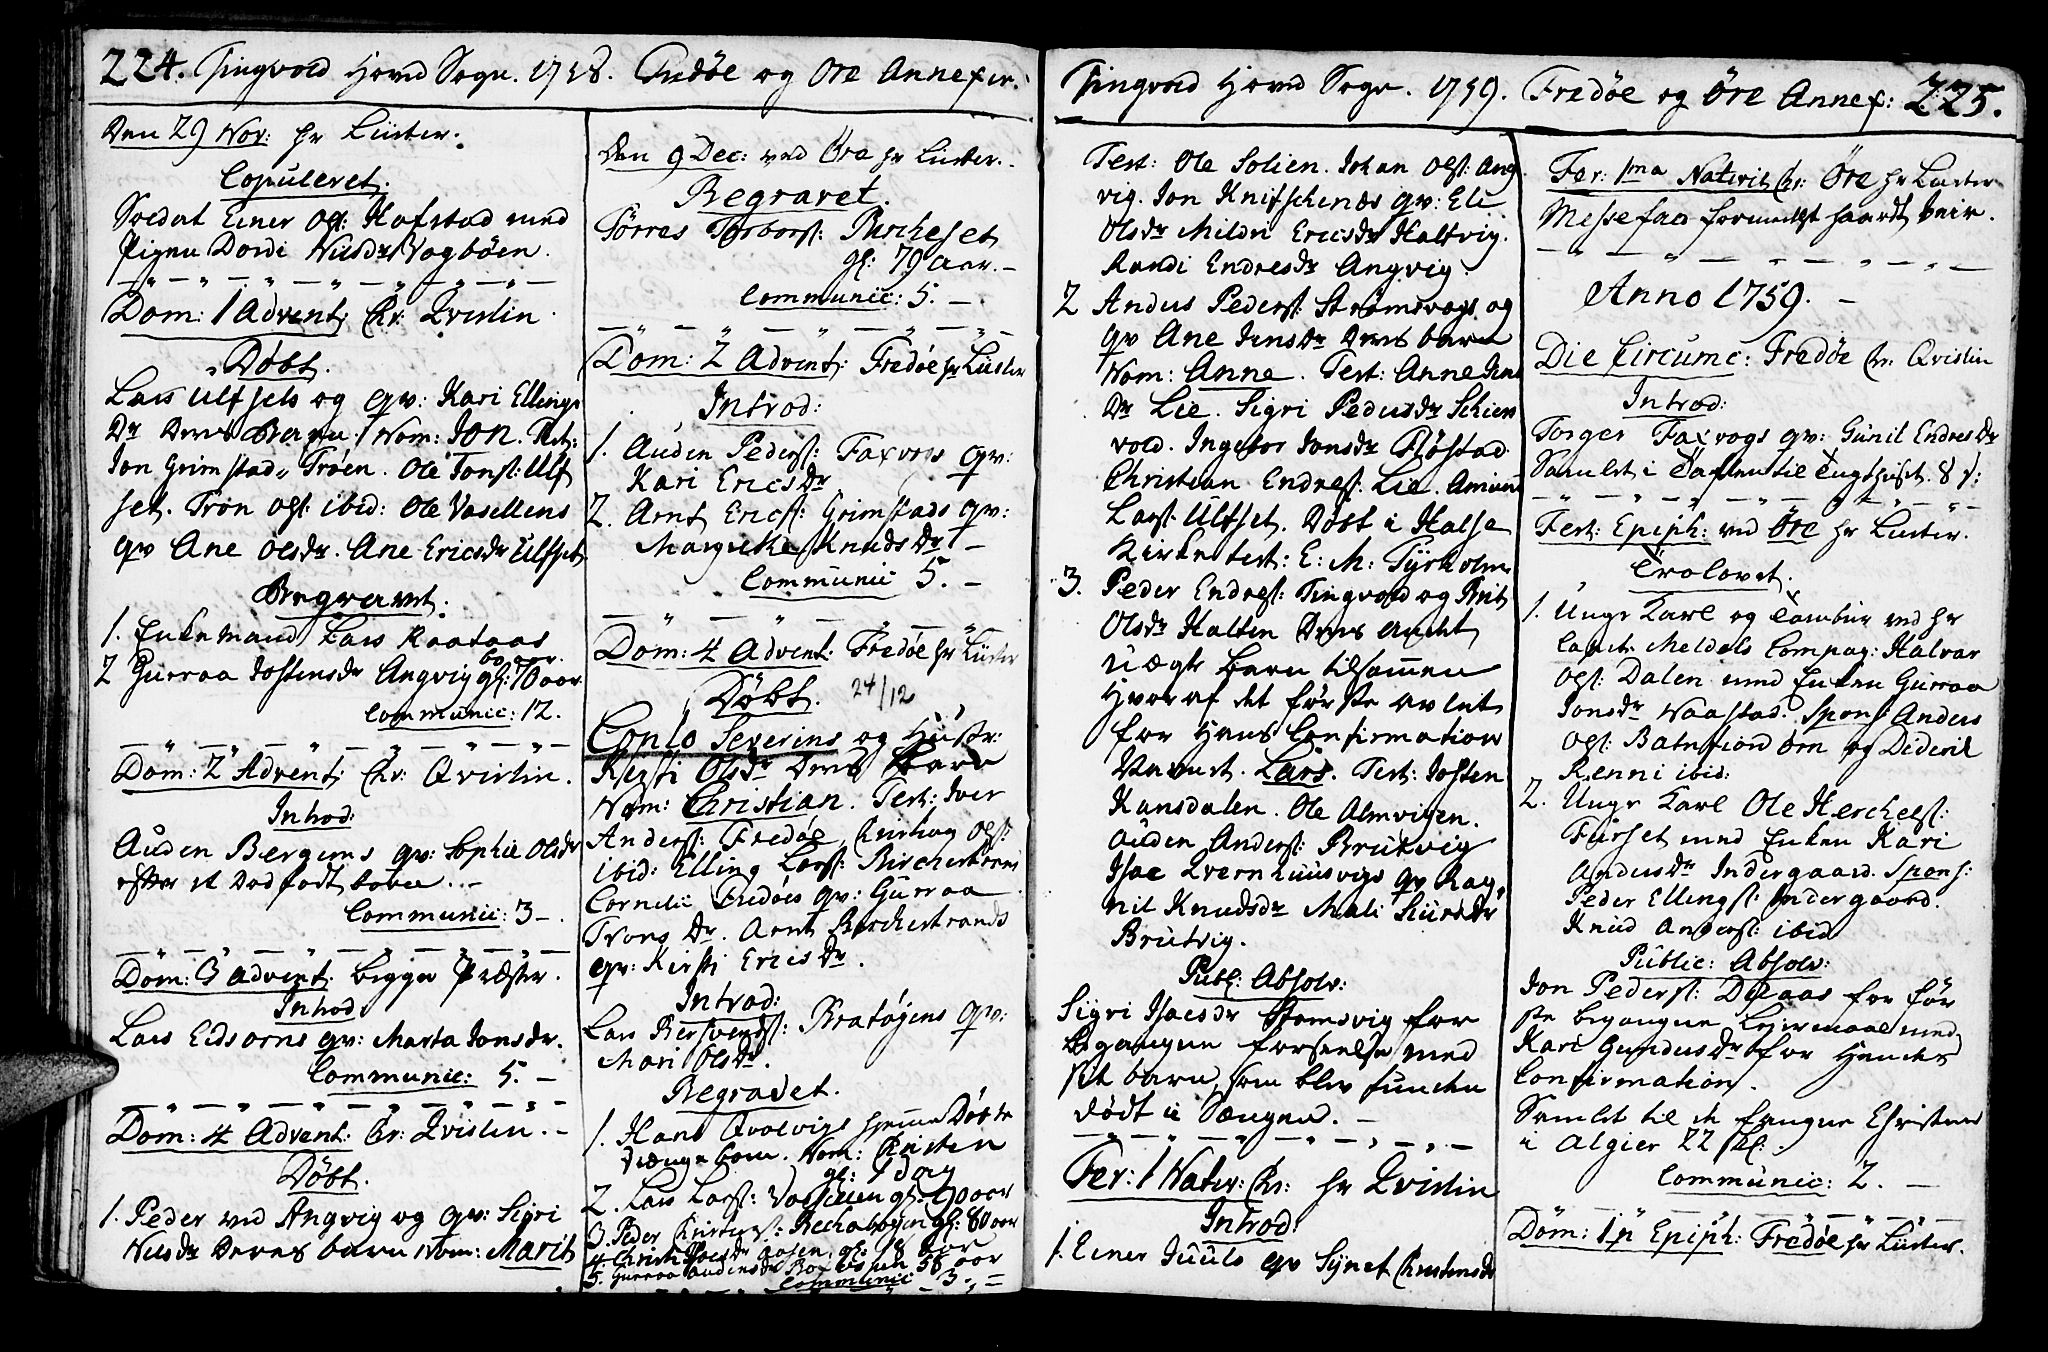 224. Tingvold Hoved Sogn. 1758. Fredøe og Øre Annexer.
Den 29 Nov: hr Lüster.
Copuleret.
Soldat Einer Ols: Hafstad med
Pigen Dordi Nilsdr Vogbøen.
Dom: 1 Advent: Hr: Qvislin.
Døbt.
Lars Ulfsets og qv: Kari Ellings
Dr Deres Barn Nom: Jon. Test:
Jon Grimstad, Trøen. Ole Jonss: Ulf
set. Tron Ols: ibid: Ole Vasellens
qv Ane Olsdr. Ane Ericsdr Ulfset
Begravet:
1. Enkemand Lars Raataas
80 aar.
2 Gurraa Jostensdr Angvig gl: 70 aar
Communic: 12.
Dom: 2 Advent: Hr: Qvislin.
Introd:
Auden Bergems qv: Sophie Olsdr
efter et Død født barn.
Communic: 3.
Dom: 3 Advent: begge Præster.
Introd:
Lars Eidsørns qv: Marta Jonsdr.
Communic: 5.
Dom: 4 Advent: Hr: Qvislin.
Døbt.
1. Peder ved Angvig og qv: Sigri
Nilsdr Deres barn Nom: Marit
Den 9 Dec: ved Øre hr Lüster.
Begravet.
Tørres Torbers: Bircheset
gl: 79 aar.
Communic: 5.
Dom: 2 Advent: Fredøe hr Lüster
Introd:
1. Auden Peders: Faxvogs qv:
Kari Ericsdr
2. Arnt Erics: Grimstads qv:
Margrete Knudsdr
Communic 5.
Dom: 4 Advent: Fredøe hr Lüster
Døbt. 24/12
Conlo Severins og Hustr:
Kirsti Olsdr Deres Barn
Nom: Christian. Test: Iver
Anders: Fredøe, Ols:
ibid: Elling Lars: Birchestrand
Corneli Fredøes qv: Gurraa
Trons Dr. Arnt Birchestrands
qv: Kirsti Ericsdr.
Introd:
Lars Bersvends: Bratøyens qv:
Mari Olsdr.
Begravet.
1. Hans Qvalvigs hjemme Døbte
Drænge barn. Nom: Kristen
gl: 1 dag
2. Lars Lars: gl: 90 aar
3. Peder Christens: gl: 80 aar
4. gl: 18 aar
5. Gurraa Andersdr 58 aar
Communic 3.
Tingvold Hoved Sogn. 1759. Fredøe og Øre Annex: 225.
Test: Ole Solien. Johan Ols: Ang
vig. Jon Knitschenæs qv: Eli
Olsdr Mildri Ericsdr Haltvig.
Randi Endresdr Angvig.
2 Anders Peders: Strømsvogs og
qv Ane Jensdr Deres barn
Nom: Anne. Test: Anne Jens
Dr Lie. Sigri Pedersdr Schien
vold. Ingebor Jonsdr Fløstad
Christian Endres: Lie. Amund
Lars: Ulfset. Døbt i Halse
Kirke test: E: M: Tyrholm
3. Peder Endres: Tingvold og Brit
Olsdr Halten Deres andet
uægte barn tilsammen
hvoraf det første avlet
for Hans Confirmation
Nom. Lars. Test: Josten
Hansdalen. Ole Almvigen.
Auden Anders: Brutvig
Isac Qvernhuusvigs qv Rag,
nil Knudsdr Mali Siursdr
Brutvig.
Publ: Absolv:
Sigri Isacsdr Stomsvig for
begangne forseelse med
sit barn, som blev funden
dødt i Sængen.
Fer: 1 Nativ: Chr: hr Qvislin
Introd:
1. Einer Juuls qv Synet Christensdr
Fer: 1ma Nativit Chr: Øre hr Lüster
Messefald formedelst haardt veir.
Anno 1759.
Die Circumc: Fredøe Hr: Qvislin
Introd:
Torger Faxvogs qv: Gunil Endresdr
Samlet i Taflen til Tugthuset. 8 s:
Fest: Epiph: ved Øre hr Lüster.
Trolovet.
1. Unge Karl og Tambur ved hr
Capit: Meldals Compag: Halvor
Ols: Dalen med Enken Gurraa
Jonsdr Naastad. Spons Anders
Ols: Batnfiord ørn og Diderik
Renni ibid:
2. Unge Karl Ole Herchels:
Furset med Enken Kari
Andersdr Indergaard. Spons:
Peder Ellings: Indergaard.
Knud Anders: ibid
Public: Absolv:
Jon Peders: for før
ste begangne Lejermaal med
Kari Gundersdr for Hendes
Confirmation.
Samlet til de fangne Christne
i Algier 22 skl:
Communic: 2.
Dom: 1 p Epiph: Fredøe hr Lüster.